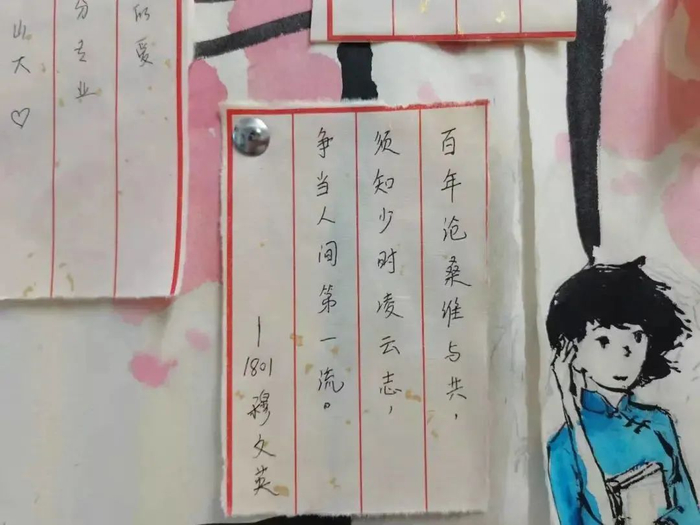 百年沧桑维与共，
须知少时凌云志，
争当人间第一流。
—1801 穆文英
分专业
山大♡